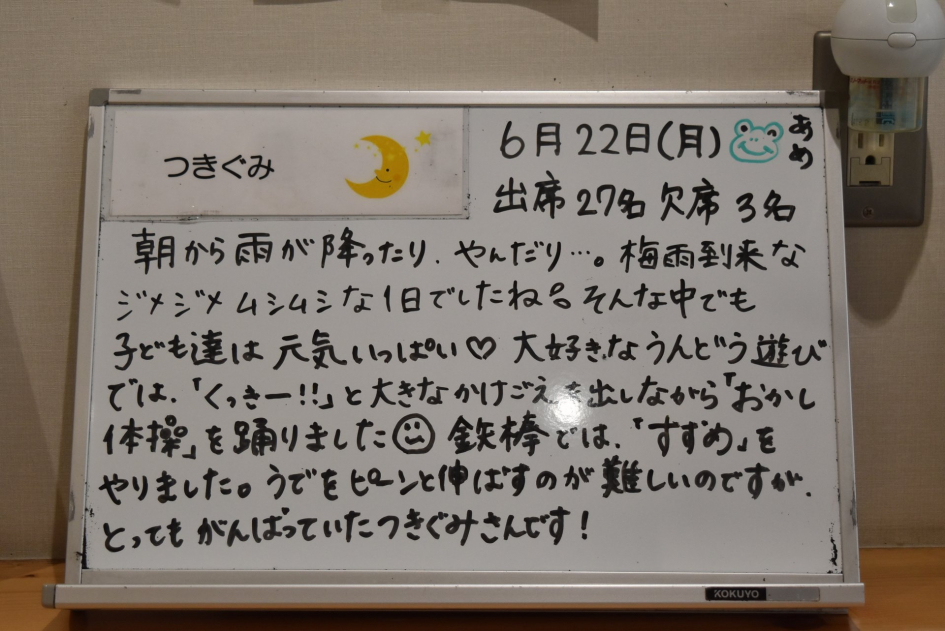 つきぐみ
6月22日(月) あめ
出席 27名 欠席 3名
朝から雨が降ったり、やんだり…。梅雨到来な
ジメジメムシムシな1日でしたね。そんな中でも
子ども達は元気いっぱい♡ 大好きなうんどう遊び
では、「くっきー!!」と大きなかけごえを出しながら「おかし
体操」を踊りました☺ 鉄棒では、「すずめ」を
やりました。うでをピーンと伸ばすのが難しいのですが、
とってもがんばっていたつきぐみさんです!
KOKUYO